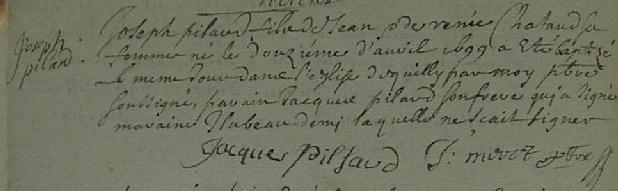 Joseph
pilard
Joseph pilard fils de Jean & de renée Chataud sa
femme né le douzieme d'avril 1699 a Eté baptisé
le meme Jour dans l'eglise de quilly par moy pbre
soussigné, parain Jacques pilard son frere qui a signé
maraine Isabeau demi laquelle ne scait signer
Jacque Pillaud J: pbre